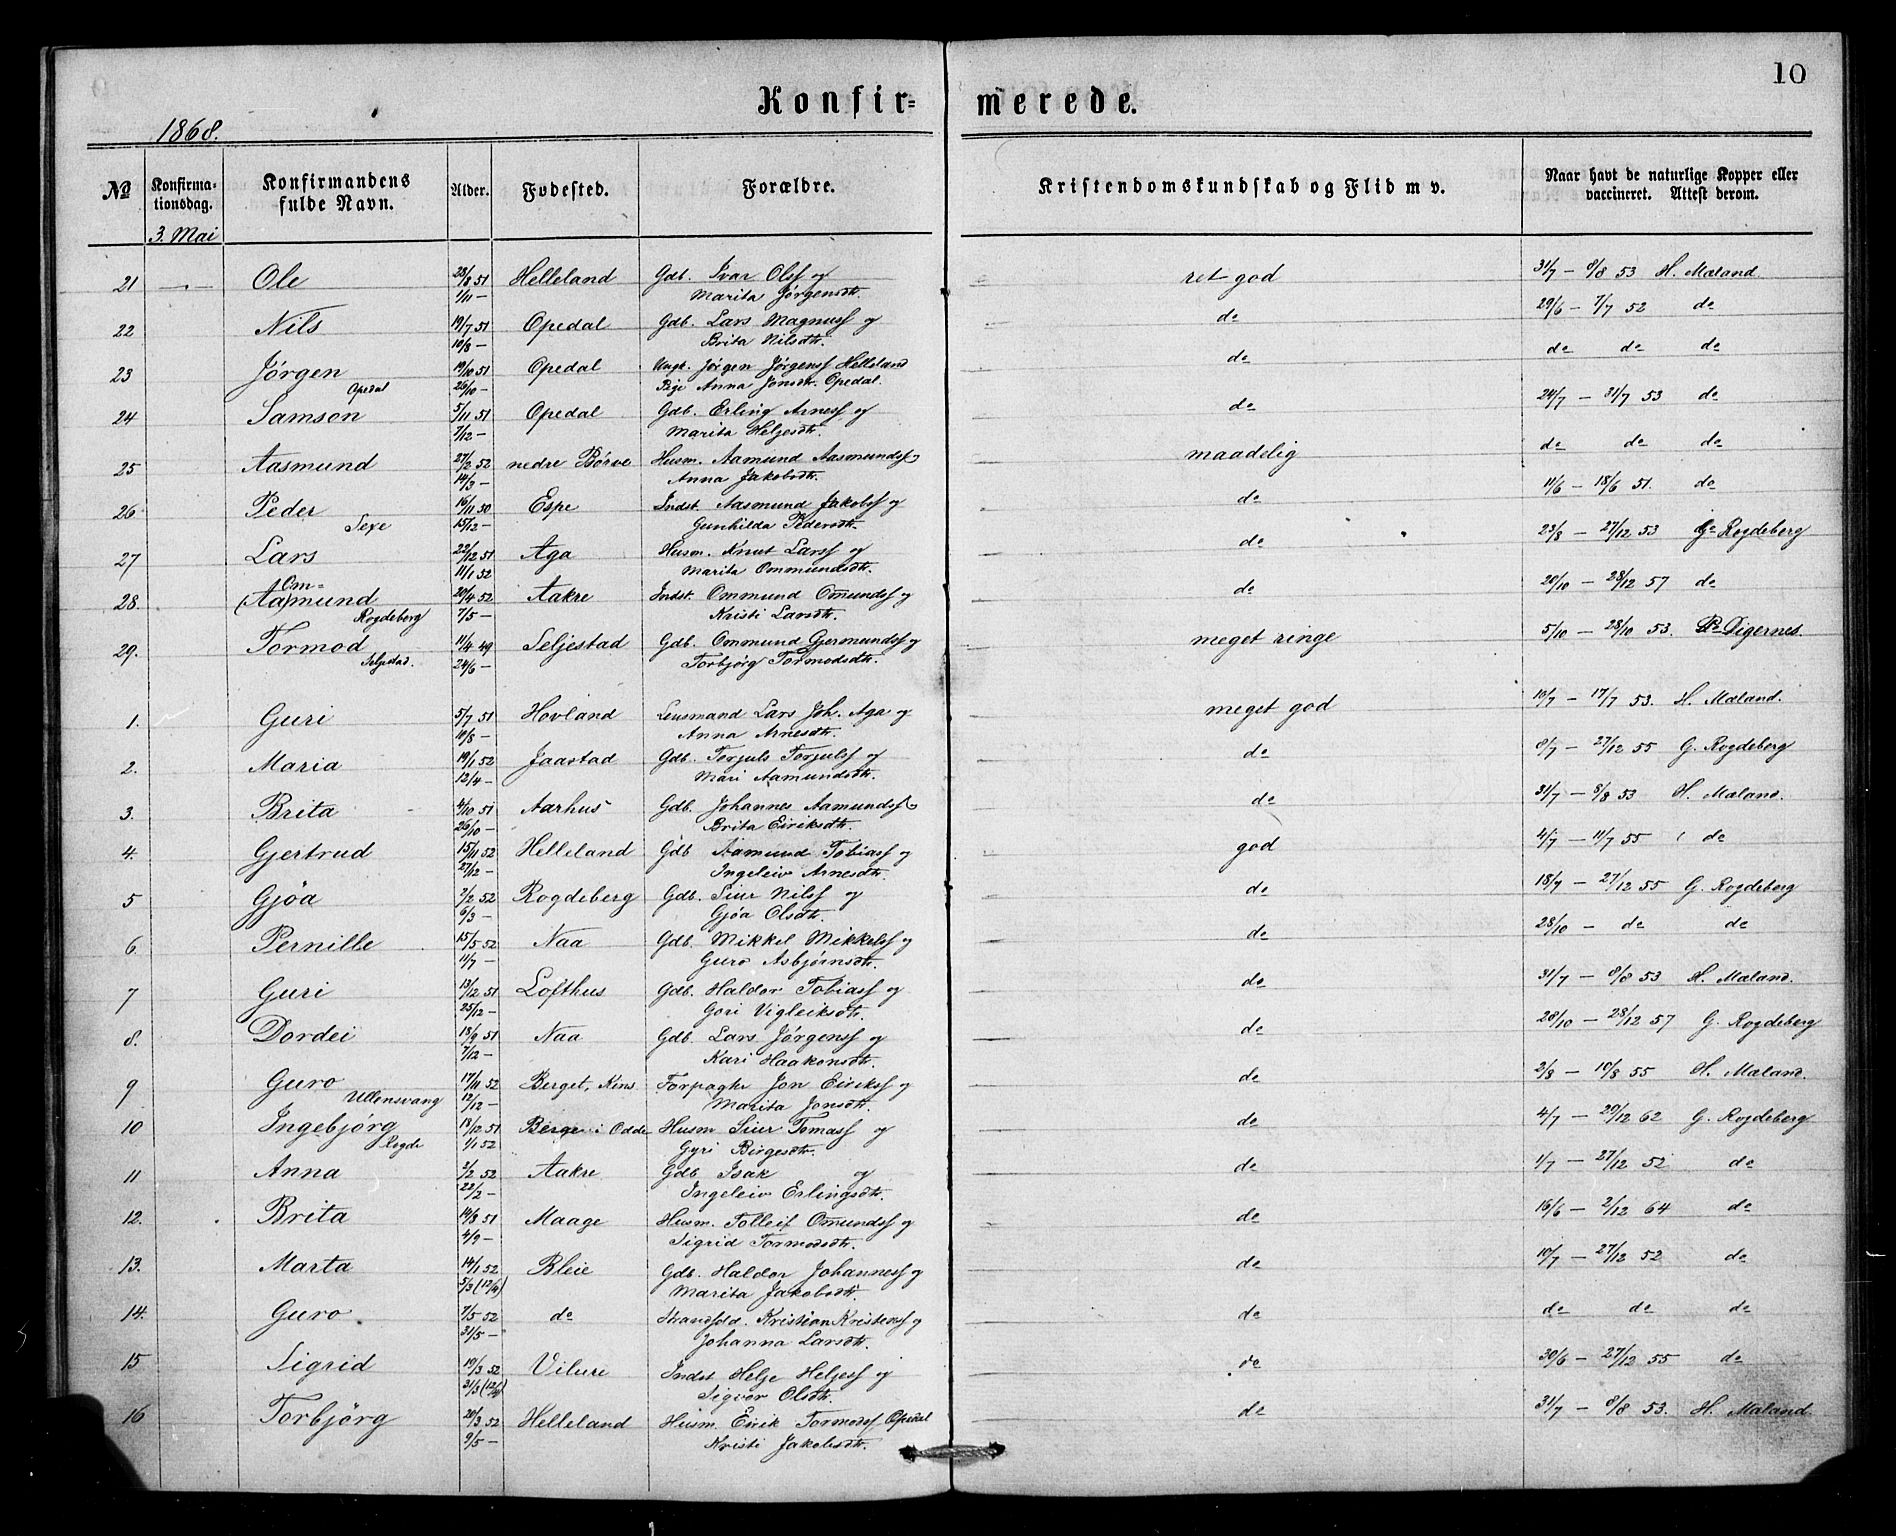 10
Konfir= merede.
1868.
№ Konfirma-tionsdag. Konfirmandens fulde Navn. Alder. Fødested. Forældre. Kristendomskundskab og Flid m v. Naar havt de naturlige Kopper eller vaccineret. Attest derom.
3. Mai
21 —„— Ole 28/8 51 Helleland Gdb. Ivar Olsf og ret god 31/7 — 8/8 53 H. Mæland.
1/11 — Marita Jørgensdtr.
22 Nils 19/7 51 Opedal Gdb. Lars Magnusf og do 29/6 — 7/7 52 do
10/8 — Brita Nilsdtr.
23 Jørgen 19/10 51 Opedal Ungk. Jørgen Jørgensf Helleland do do do do
Opedal 26/10 — Pige Anna Jonsdtr. Opedal.
24 Samson 5/11 51 Opedal Gdb. Erling Arnesf og do 24/7 — 31/7 53 do
7/12 — Marita Heljesdtr.
25 Aasmund 27/2 52 nedre Børve Husm. Aamund Aasmundsf og maadelig do do do
14/3 — Anna Jakobsdtr.
26 Peder 16/11 50 Espe Indst. Aasmund Jakobsf og do 11/6 — 18/6 51. do
Sexe 15/12 — Gunhilda Pedersdtr.
27 Lars 22/12 51 Aga Husm. Knut Larsf og do 23/8 — 27/12 53 G. Rogdeberg
11/1 52 Marita Ommundsdtr.
Om=
28. (Aa)mund 20/4 52 Aakre Indst. Ommund Omundsf og do 20/10 — 28/12 57 do
Rogdeberg 7/5 — Kristi Larsdtr.
29. Tormod 11/4 49 Seljestad Gdb. Ommund Gjermundsf og meget ringe 5/10 — 28/10 53. P. Digernes.
Seljestad. 24/6 — Torbjørg Tormodsdtr.
1. Guri 5/7 51 Hovland Lensmand Lars Joh. Aga og meget god 10/7 — 17/7 53. H. Mæland.
10/8 — Anna Arnesdtr.
2. Maria 19/1 52 Jaastad Gdb. Torjuls Torjulsf og do 8/7 — 27/12 55 G. Rogdeberg
12/4 — Mari Aamundsdtr.
3. Brita 4/10 51 Aarhus Gdb. Johannes Aamundsf og do 31/7 — 8/8 53 H. Mæland.
26/10 — Brita Eiriksdtr.
4. Gjertrud 15/11 52 Helleland Gdb Aamund Tobiasf og god 4/7 — 11/7 55 do
27/12 — Ingeleiv Arnesdtr.
5 Gjøa 2/2 52 Rogdeberg Gdb. Siur Nilsf og do 18/7 — 27/12 55 G. Rogdeberg
6/3 — Gjøa Olsdtr.
6. Pernille 15/5 52 Naa Gdb. Mikkel Mikkelsf og do 28/10 — do do
11/7 — Guro Asbjørnsdtr.
7 Guri 13/12 51 Lofthus Gdb. Haldor Tobiasf og do 31/7 — 8/8 53 H. Mæland.
25/12 — Gori Vigleiksdtr.
8. Dordei 18/9 51 Naa Gdb. Lars Jørgensf og do 20/10 — 28/12 57 G. Rogdeberg
7/12 — Kari Haakonsdtr.
9 Guro 17/11 52 Berget, Kins Forpagtr Jon Eiriksf og do 2/8 — 10/8 55 H. Mæland.
Ullensvang 12/12 — Marita Jonsdtr.
10 Ingebjørg 13/12 51 Berge i Odde Husm Siur Tomasf og do 4/7 — 29/12 62 G. Rogdeberg
Rogde 1/1 52 Gyri Birgesdtr.
11 Anna 2/2 52 Aakre Gdb Isak og do 1/7 — 27/12 52 do
22/2 — Ingeleiv Erlingsdtr.
12. Brita 14/8 51 Maage Husm. Tolleif Omundsf og do 16/6 — 2/12 64 do
4/9 — Sigrid Tormodsdtr.
13. Marta 14/1 52 Bleie Gdb. Haldor Johannesf og do 10/7 — 27/12 52 do
5/3 (12/4) Marita Jakobsdtr.
14. Guro 7/5 52 do Strandsid. Kristian Kristensf og do do do do
31/5 — Johanna Larsdtr.
15 Sigrid 19/3 52 Vilure Indst Helje Heljesf og do 30/6 — 27/12 55 do
31/3 (12/4) Sigvor Olsdtr.
16 Torbjørg 20/3 52 Helleland Husm. Eirik Tormodsf Opedal do 31/7 — 8/8 53. H. Mæland.
9/5 — Kristi Jakobsdtr.